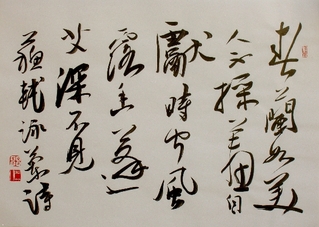 春蘭如美
人不採羞自
獻時聞風
露香蓬艾
深不見
蘇軾詠蘭詩